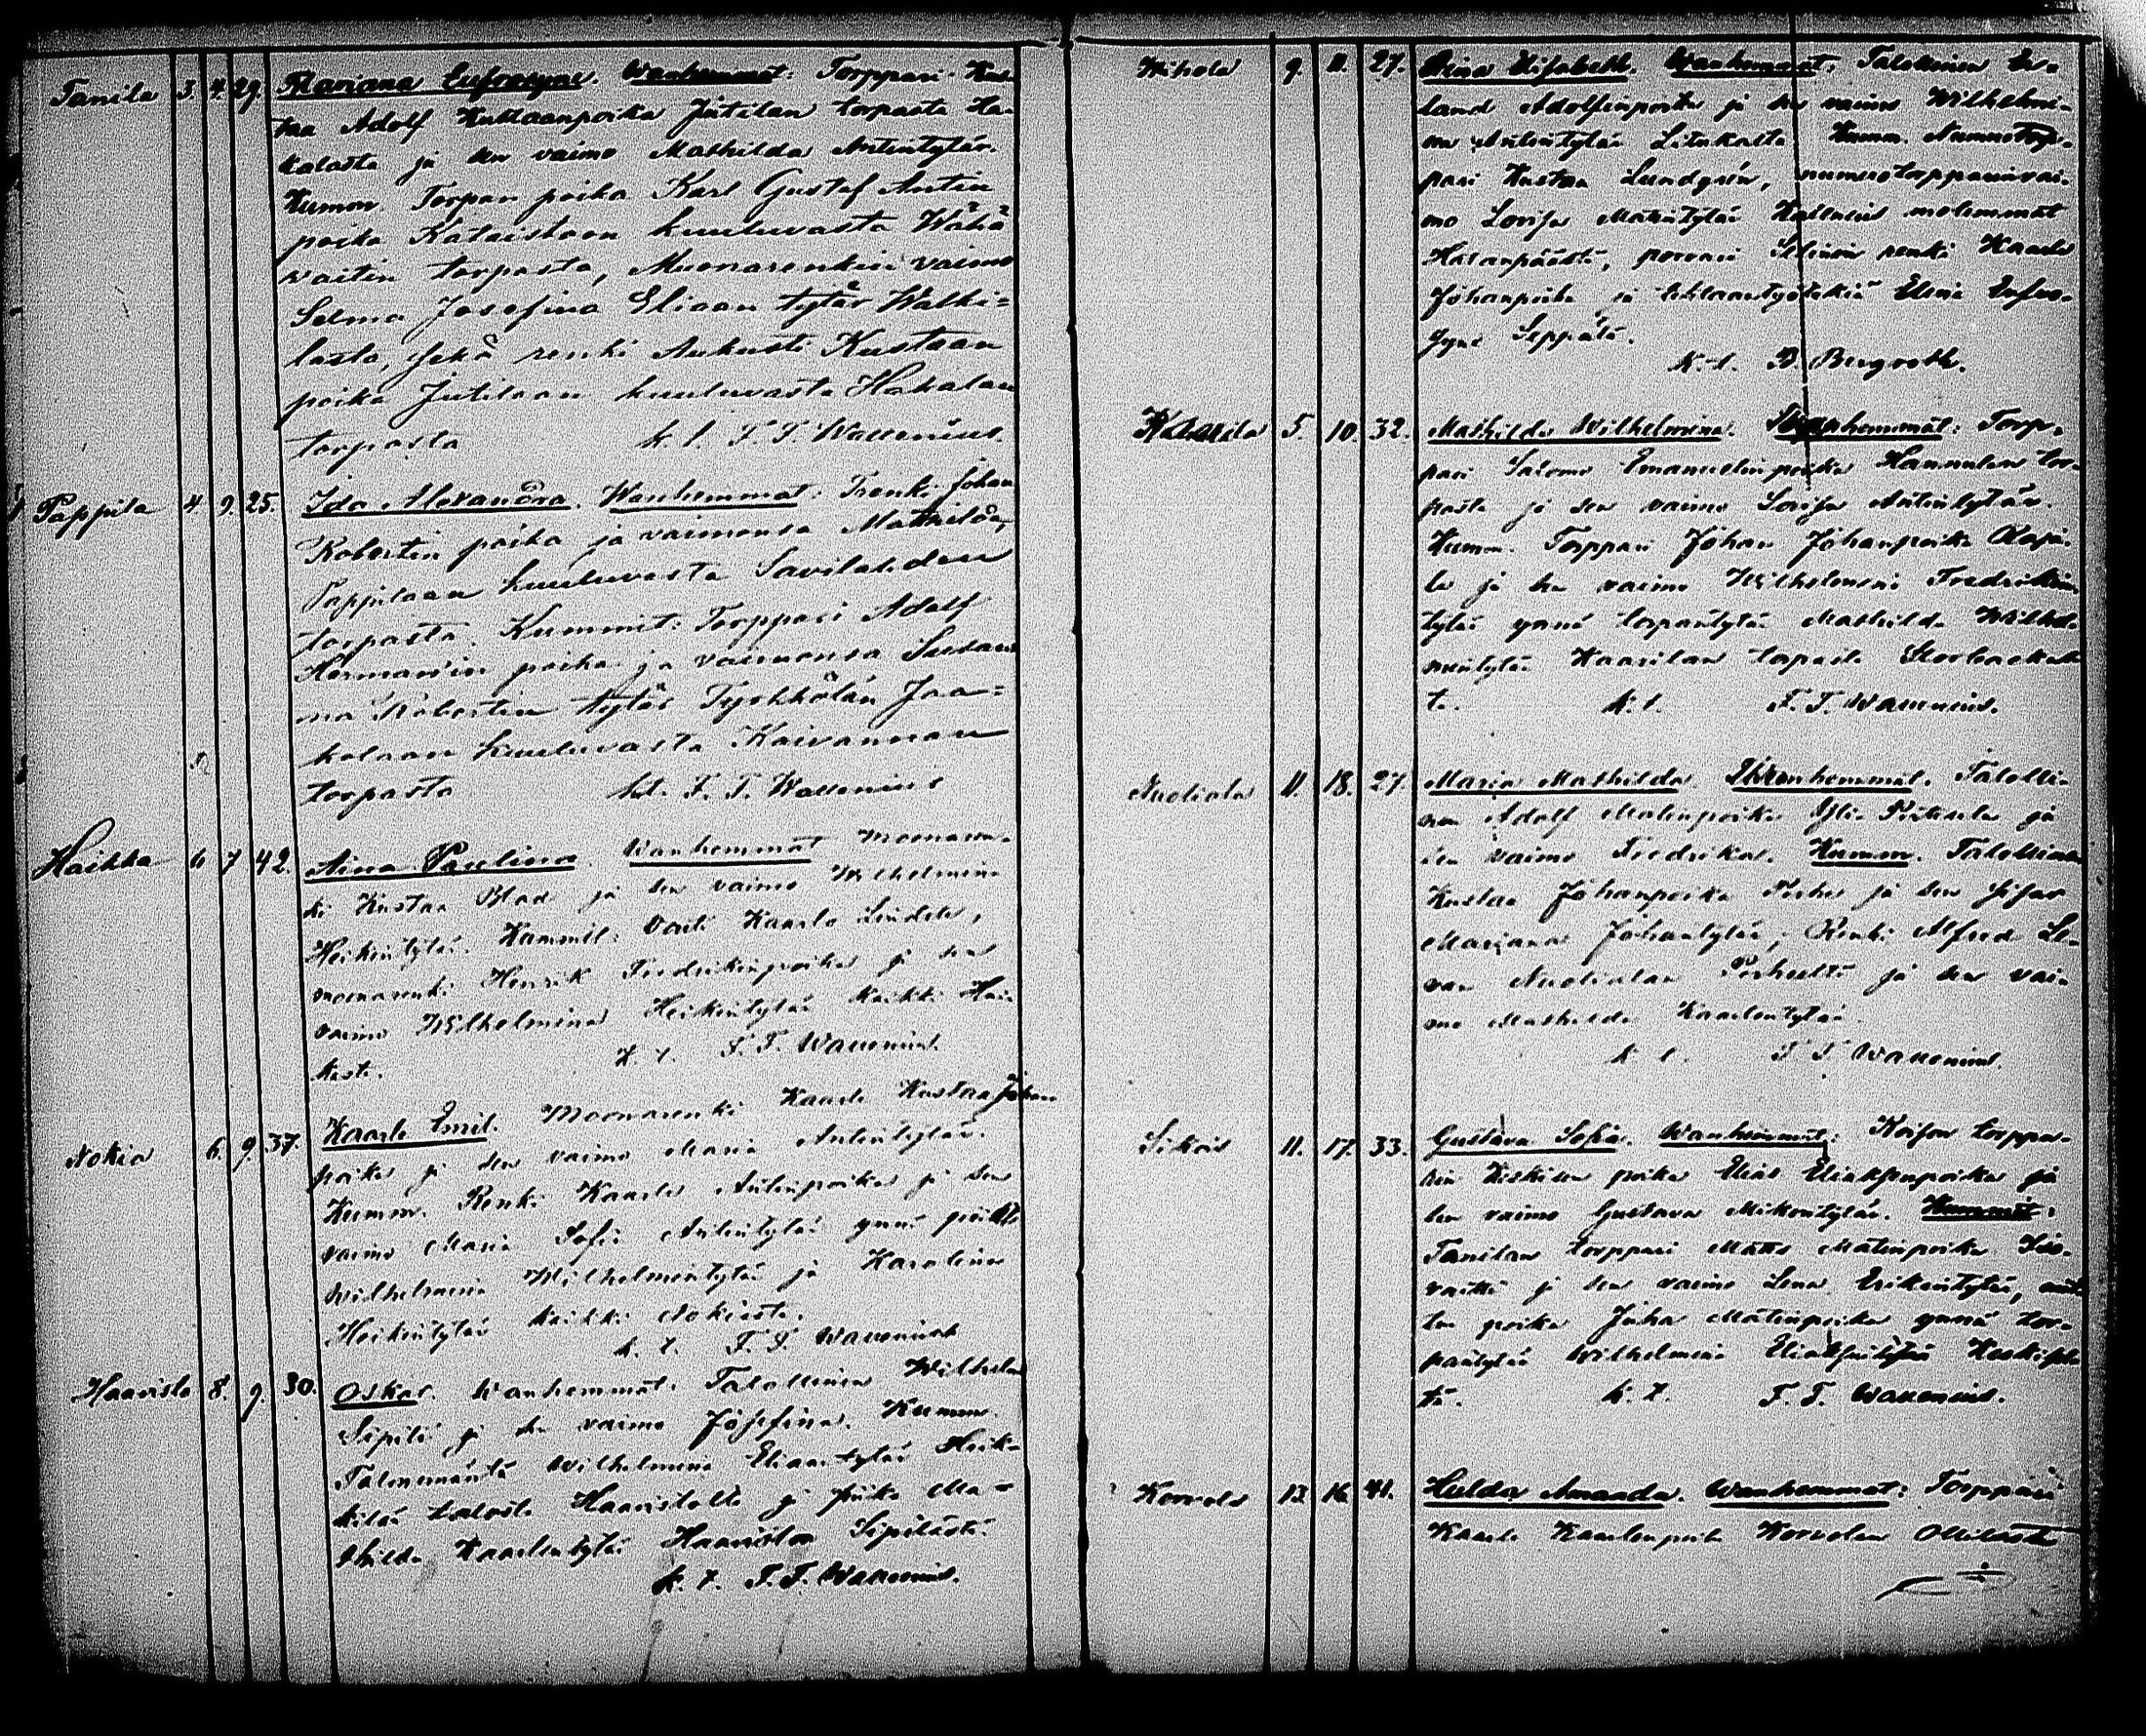 Tanila 3. 4. 29. Mariana Eufrosyne. Wanhemmat: Torppari Kus-
taa Adolf Kustaanpoika Jutilan torpasta Ha-
kalasta ja sen vaimo Mathilda Antintytär.
Kumm. Torpan poika Karl Gustaf Antin
poika Kataistoon kuuluvasta Wähä
waitin torpasta, Muonarenkin vaimo
Selma Josefina Eliaan tytär Walki=
lasta, sekä renki Aukusti Kustaan
poika Jutilaan kuuluvasta Hakalan
torpasta k. t. F. F. Wallenius.
Pappila 4 9. 25. Ida Alexandra. Wanhemmat: Trenki Johan
Robertin poika ja vaimonsa Mathilda,
Pappilaan kuuluvasta Savilahden
torpasta. Kummit: Torppari Adolf
Hermannin poika ja vaimonsa Susan
na Robertin tytär Tyrkkölän Jaa=
kolaan kuuluvasta Kaivannan
torpasta k.t. F. F. Wallenius
Haikka 6 7 42. Aina Paulina. Wanhemmat Moonaren-
ki Kustaa Blad ja sen vaimo Wilhelmina
Heikintytär. Kummit: Vouti Kaarlo Lindele,
moonarenki Henrik Fredrikinpoika ja sen
vaimo Wilhelmina Heikintytär kaikki Hai-
kasta. k. t. F. F. Wallenius.
Nokia 6. 9. 37. Kaarle Emil. Moonarenki Kaarle Kustaa Johan
poika ja sen vaimo Maria Antintytär.
Kumm. Renki Kaarle Antinpoika ja sen
vaimo Maria Sofia Antintytär ynnä piiat
Wilhelmina Wilhelmintytär ja Karolina
Heikintytär kaikki Nokiasta.
k. t. F. F. Wallenius
Haavisto 8. 9. 30. Oskar. Wanhemmat: Talollinen Wilhelm
Sipilä ja sen vaimo Josefina. Kumm.
Talonemäntä Wilhelmina Eliaantytär Heik-
kilän talosta Haavistolla ja piika Ma-
thilda Kaarlentytär Haaviston Sipilästä.
k. t. F. F. Wallenius.
9. 11. 27. Elisabeth. Wanhemmat: Talollinen
land Adolfinpoika ja sen vaimo Wilhelmi-
na Antintytär Kumm. Numrotorp-
pari Kustaa Lundgrén, numrotorpparinvai-
mo Lovisa Matintytär molemmat
Haranpäästä, porvari renki Kaarle
Johanpoika ja tehtaantyötekiä Elina Eufro-
syne Seppälä.
k. t. B. Bergroth.
5. 10. 32. Mathilda Wilhelmina. Wanhemmat: Torp-
pari Salomo Emanuelinpoika Hannulan tor-
pasta ja sen vaimo Lovisa Antintytär.
Kumm. Torppari Johan Johanpoika
la ja sen vaimo Wilhelmina Fredrikin
tytär ynnä torpantytär Mathilda Wilhel-
mintytär Kaarilan torpasta
ta. k. t. F. F. Wallenius.
Nuoliala 11. 18. 27. Maria Mathilda. Wanhemmat. Talolli-
nen Adolf Matinpoika Yli-Pirkkala ja
sen vaimo Fredrika. Kumm. Talollinen
Kustaa Johanpoika ja sen sisar
Mariana Johantytär, Renki Alfred Le-
van Nuolialan ja sen vai-
mo Mathilda Kaarlentytär.
k. t. F. F. Wallenius.
11. 17. 33. Gustava Sofia. Wanhemmat: torppa-
rin poika Elias Eliaksenpoika ja
sen vaimo Gustava Mikontytär. Kummit:
Tanilan torppari Matts Matinpoika
ja sen vaimo Lena Erikintytär,
poika Juha Matinpoika ynnä tor-
pantytär Wilhelmina
tä. k. t. F. F. Wallenius.
13. 16. 41. Hulda Amanda. Wanhemmat: Torppari
Kaarle Kaarlenpoika Korvolan Ollilasta